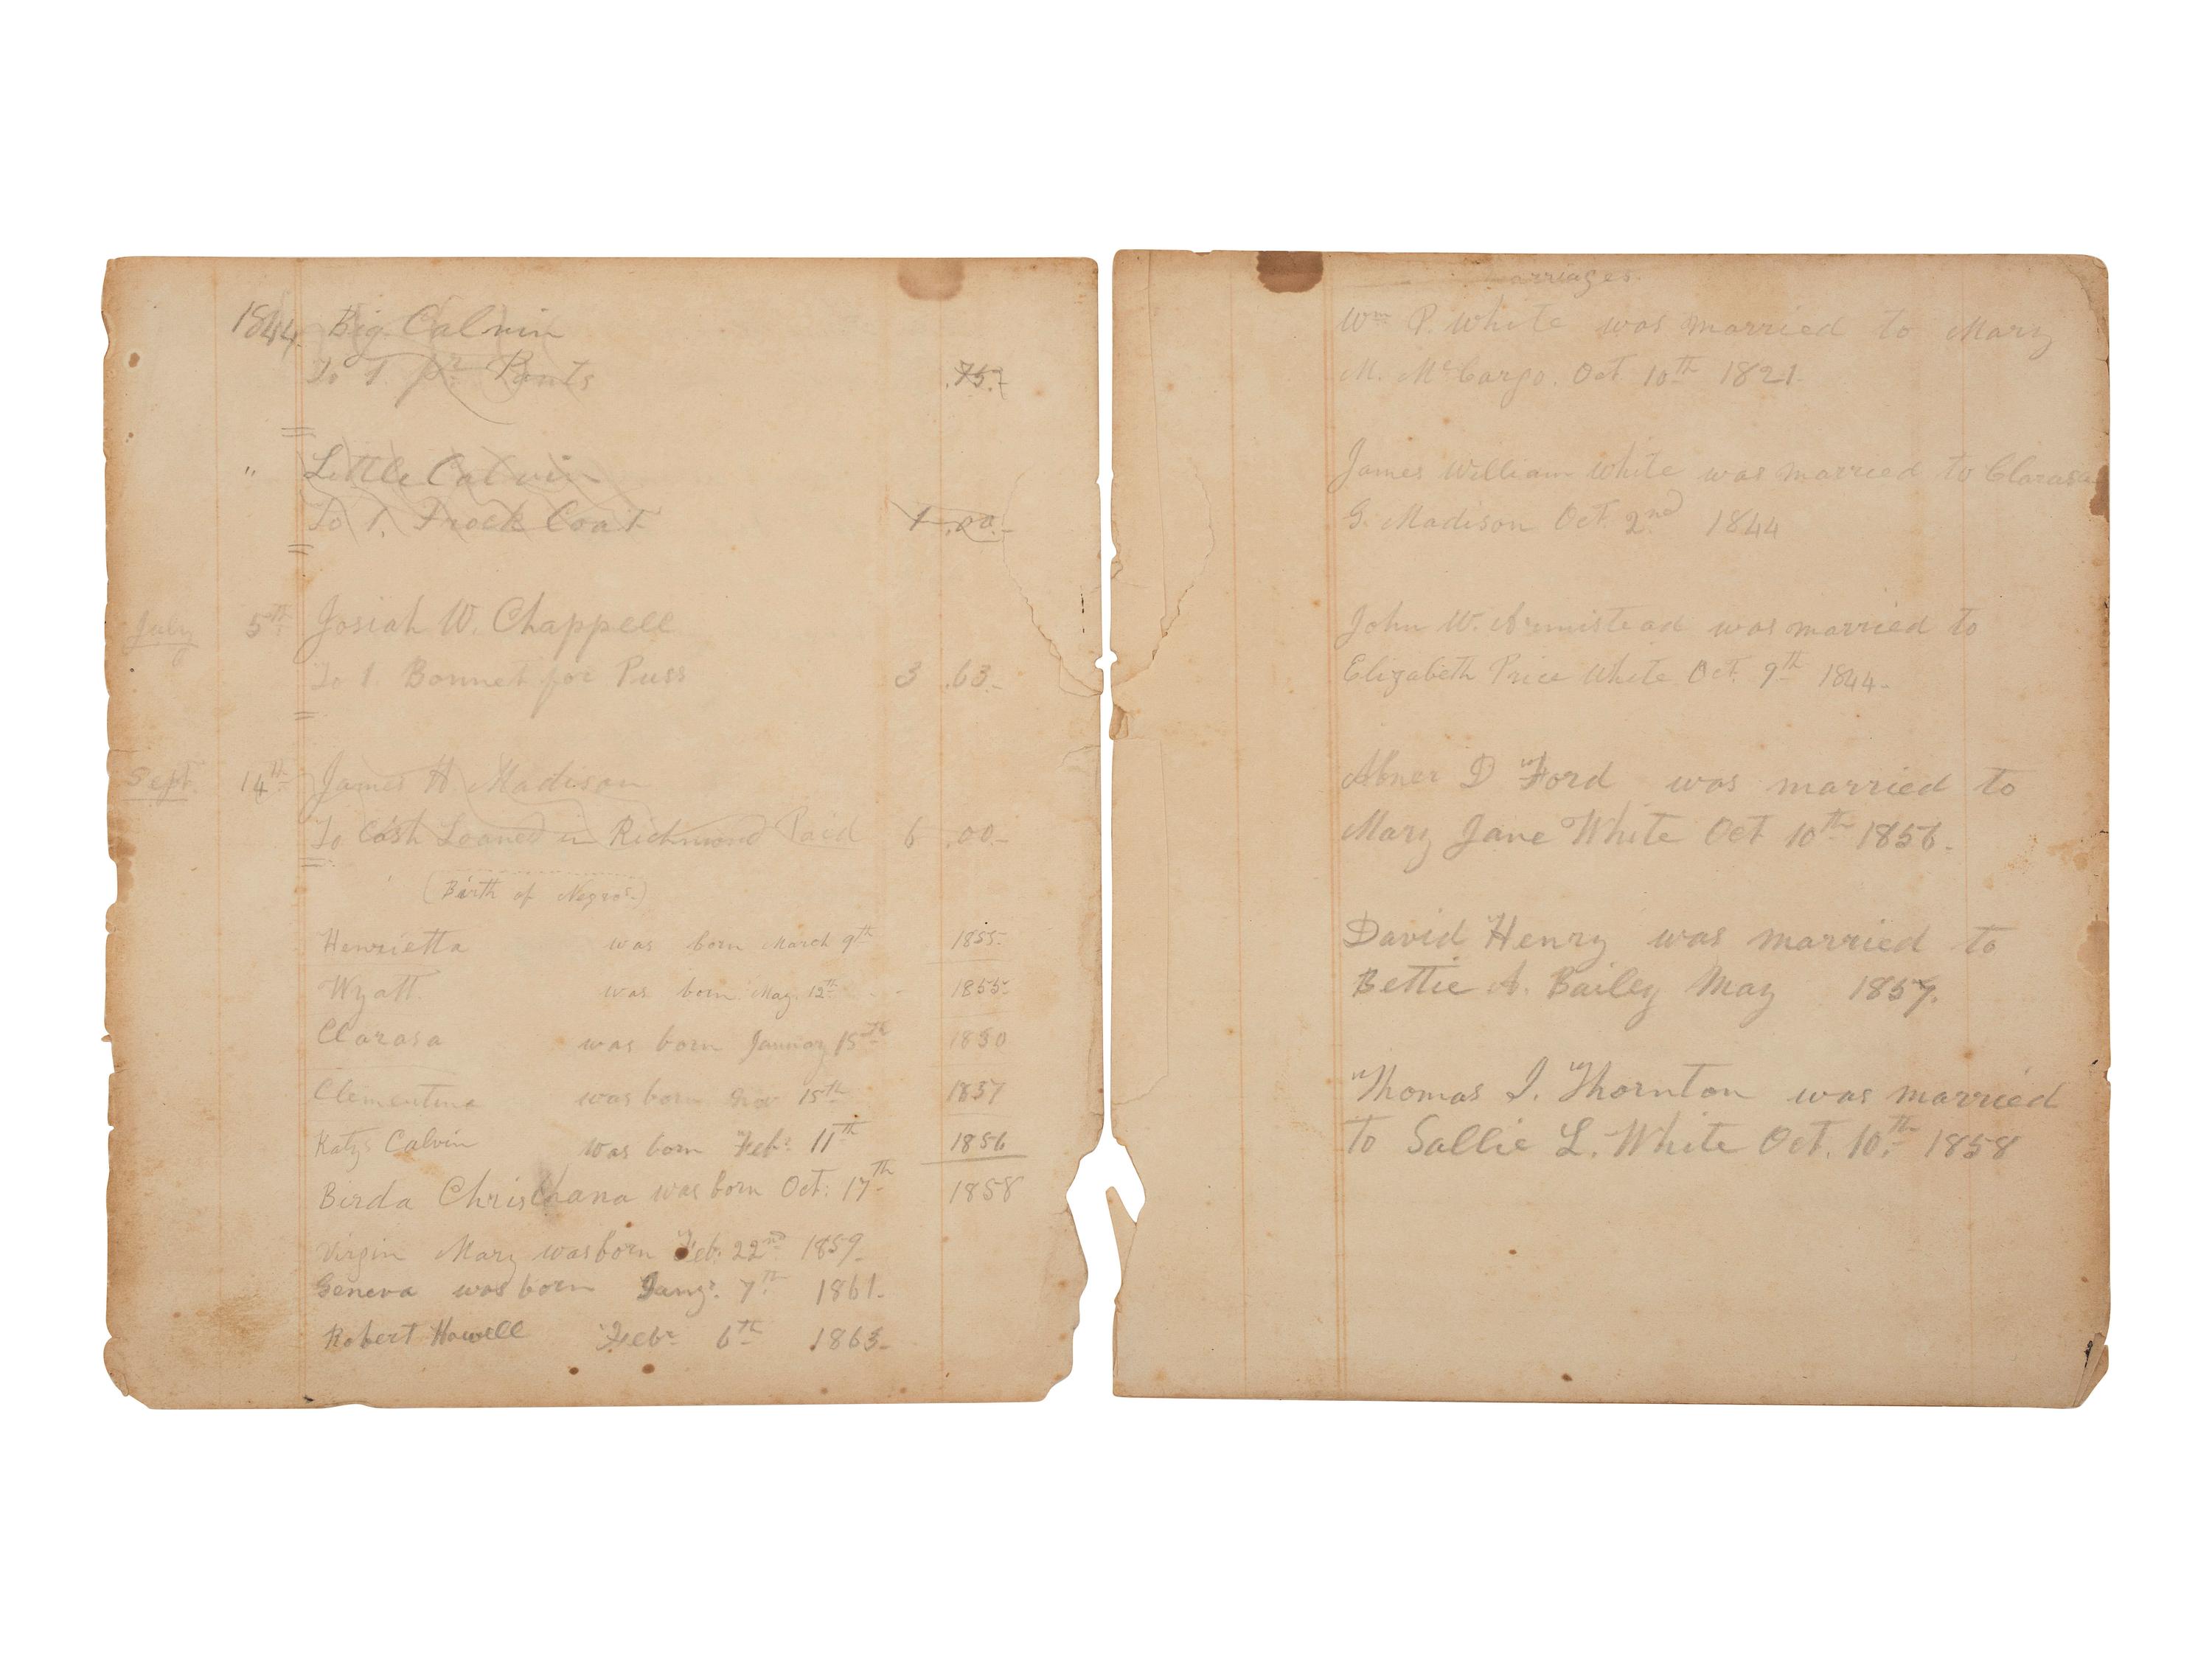 1844. Big Calvin
To 1. pr Pants .75.
" Little Calvin
To 1. Frock Coat 1 .00.
July 5th Josiah W. Chappell
To 1. Bonnet for Puss 3 .63.
Sept. 14th James H. Madison
To Cash Loaned in Richmond Paid 6 .00.
(Birth of Negros.)
Henrietta was born March 9th 1855.
Wyatt was born May. 12th 1855
Clarasa was born January 15th 1850
Clementina was born Nov 15th 1857
Katys Calvin was born Feb. 11th 1856
Birda Christiana was born Oct: 17th 1858
Virgin Mary was born Feb. 22nd 1859.
Geneva was born Jany. 7th 1861.
Robert Howell Feb. 6th 1863.
Marriages.
Wm P. White was married to Mary
M. McCargo. Oct 10th 1821.
James William White was married to Clarasa
G. Madison Oct. 2nd 1844
John W. Armistead was married to
Elizabeth Price White Oct. 9th 1844.
Abner D Ford was married to
Mary Jane White Oct 10th 1856.
David Henry was married to
Bettie A. Bailey May 1857.
Thomas I. Thornton was married
to Sallie L. White Oct. 10th 1858